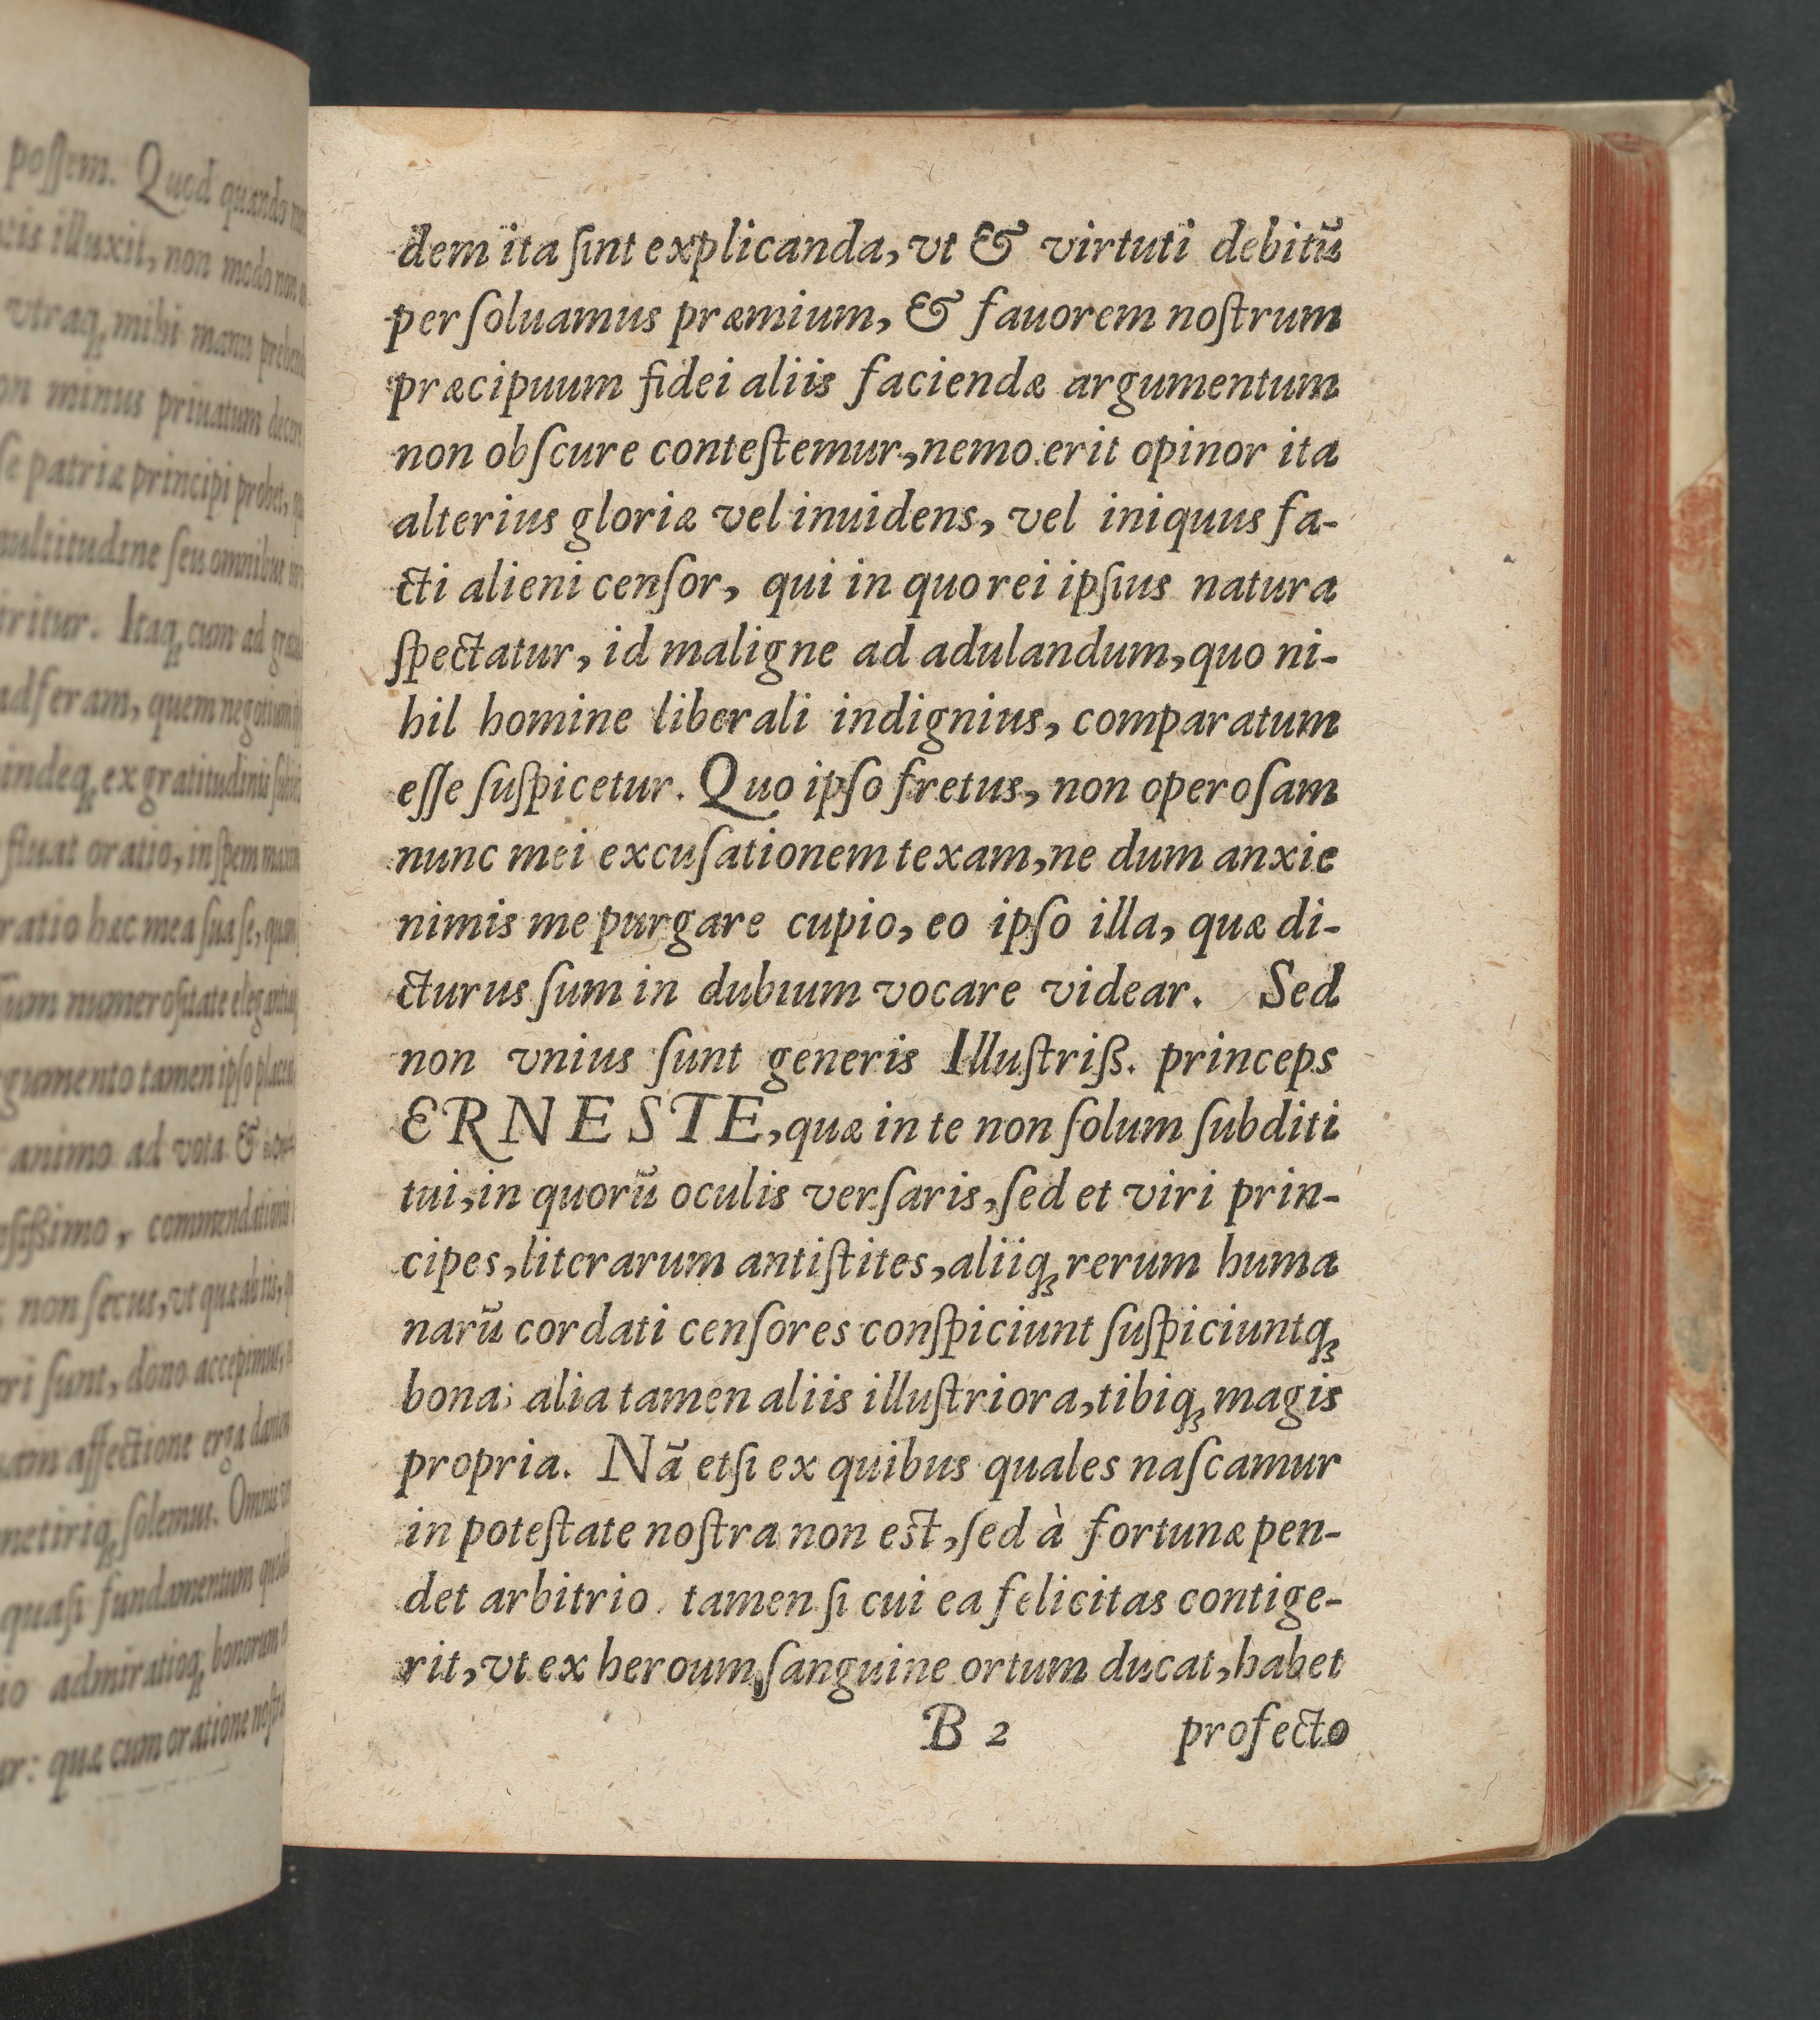 possem. Quod quando
illuxit, non modo non
vtraq; mihi manu
minus priuatum
se patriæ principi probet,
multitudine seu omnibus
Itaq; cum ad
quem negotium
indeq; ex gratitudinis
fluat oratio, in spem
hæc mea suase,
numerositate
tamen ipso
animo ad vota &
commendationi
non secus, vt quæ ab iis,
sunt, dono accepimus,
affectione erga
metiriq; solemus.
quasi fundamentum
admiratioq; bonorum
quæ cum oratione
dem ita ſint explicanda, vt & virtuti debitũ
perſoluamus præmium, & fauorem noſtrum
præcipuum fidei aliis faciendæ argumentum
non obſcure conteſtemur, nemo erit opinor ita
alterius gloriæ vel inuidens, vel iniquus fa-
cti alieni cenſor, qui in quo rei ipſius natura
ſpectatur, id maligne ad adulandum, quo ni-
hil homine liberali indignius, comparatum
eſſe ſuſpicetur. Quo ipſo fretus, non operoſam
nunc mei excuſationem texam, ne dum anxie
nimis me purgare cupio, eo ipſo illa, quæ di-
cturus ſum in dubium vocare videar. Sed
non vnius ſunt generis Illuſtriß. princeps
ERNESTE, quæ in te non ſolum ſubditi
tui, in quorũ oculis verſaris, ſed et viri prin-
cipes, literarum antiſtites, aliiq; rerum huma
narũ cordati cenſores conſpiciunt ſuſpiciuntq;
bona; alia tamen aliis illuſtriora, tibiq; magis
propria. Nã etſi ex quibus quales naſcamur
in poteſtate noſtra non eſt, ſed à fortunæ pen-
det arbitrio. tamen ſi cui ea felicitas contige-
rit, vt ex heroum ſanguine ortum ducat, habet
B 2 profecto